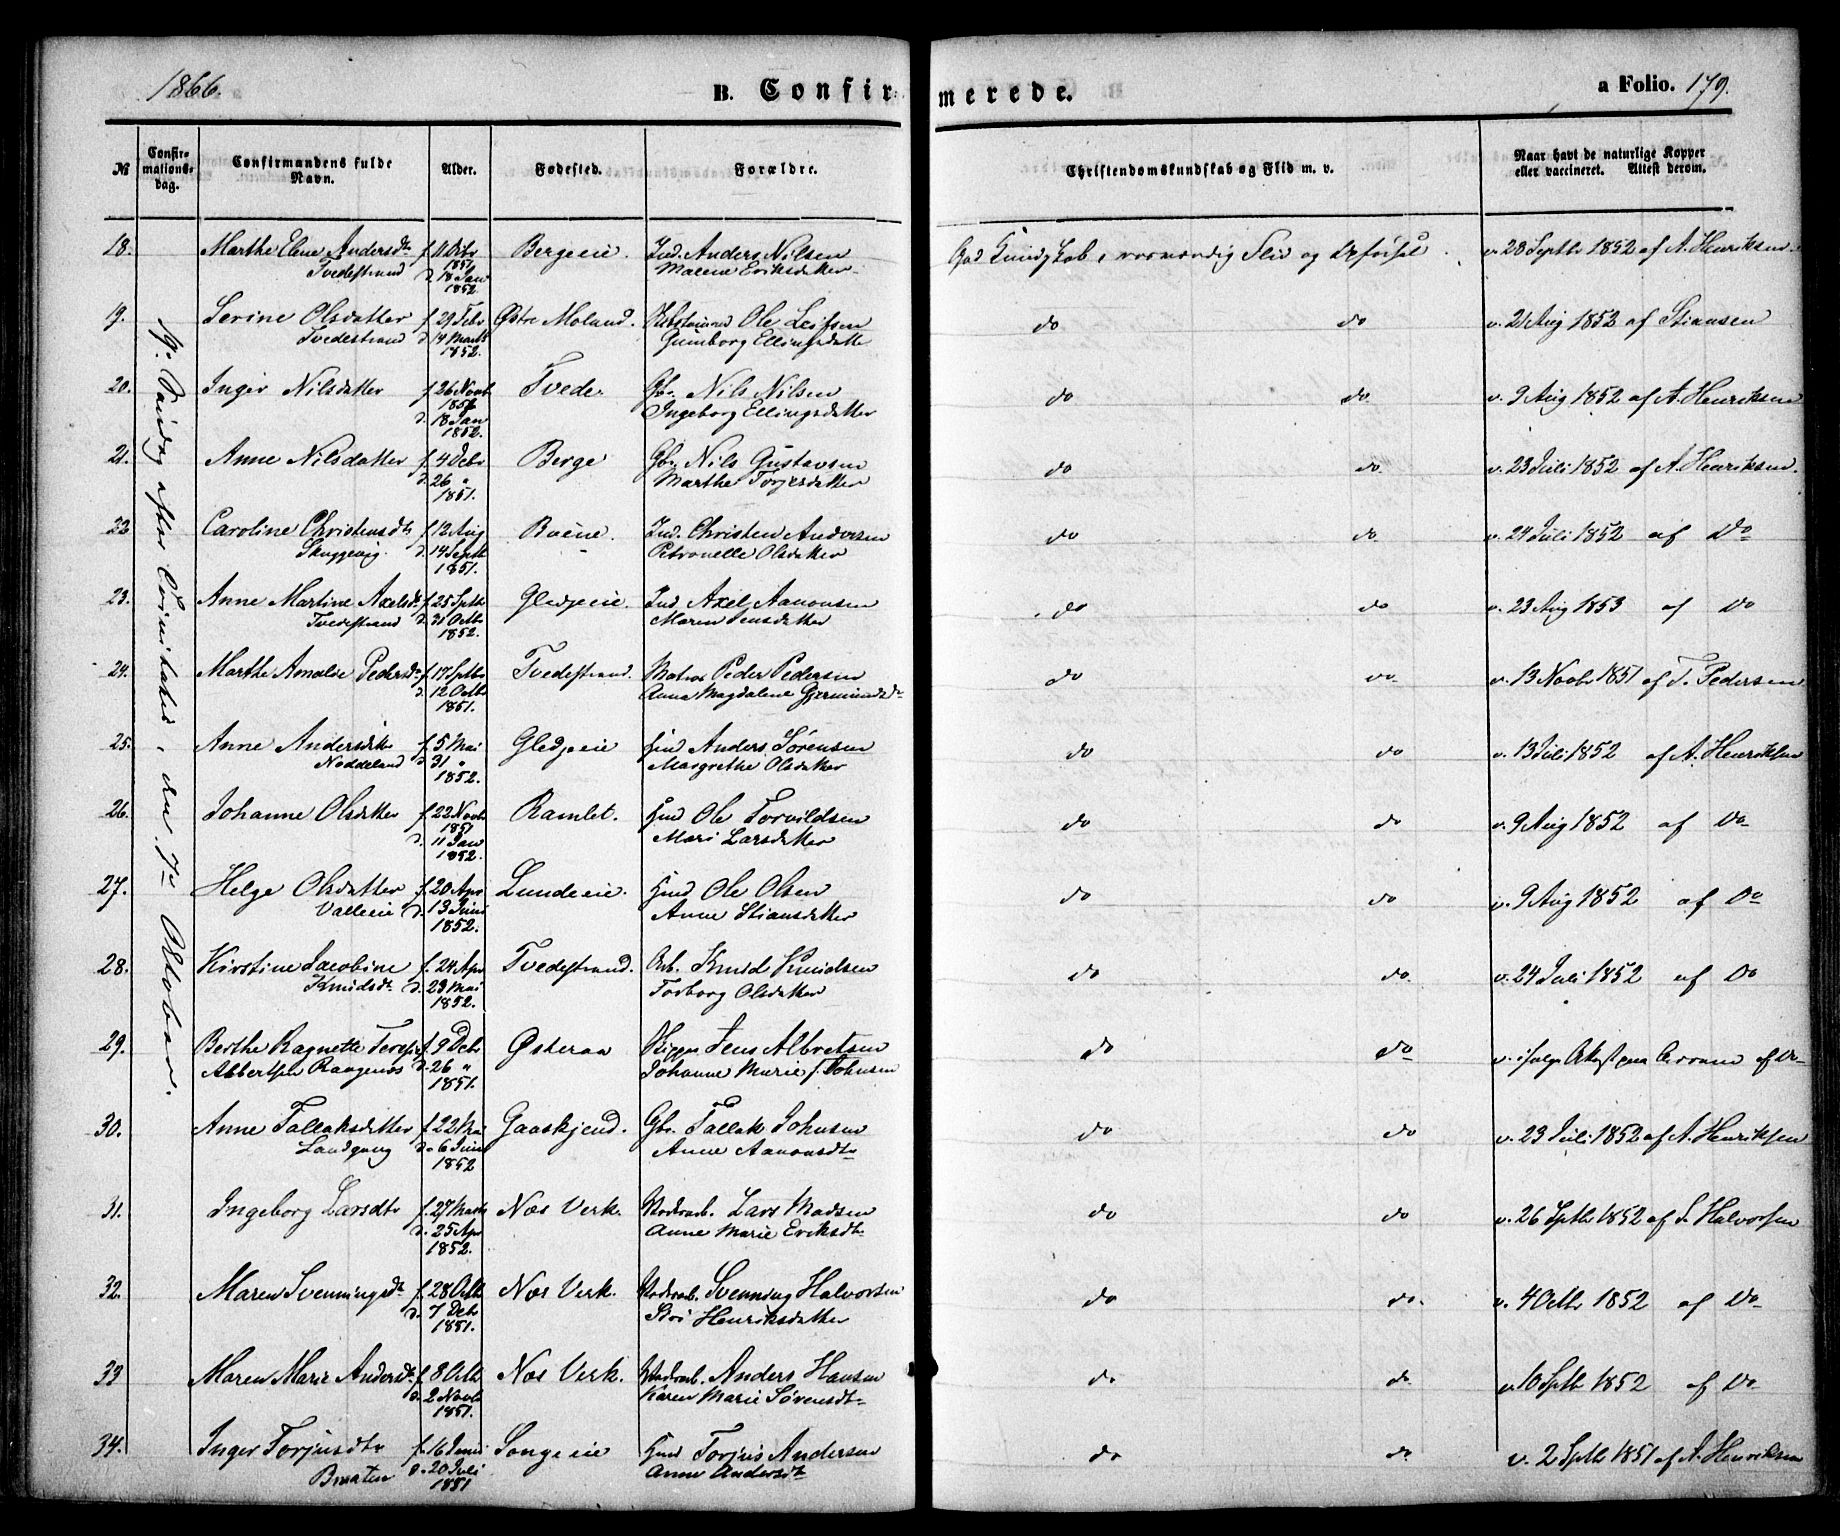 1866.
B. Confirmerede.
a Folio. 179.
№
Confirmations-dag.
Confirmandens fulde Navn.
Alder.
Fødested.
Forældre.
Christendomskundskab og Flid m. v.
Naar havt de naturlige Kopper eller vaccineret. Attest derom.
19. Søndag efter Trinitatis, den 7de Oktober.
18. Marthe Elene Andersdt f. 11 Debr Bergeeie. Ind. Anders Nilsen God Kundskab, vorvændig Flid og Opførsel v. 28 Septbr 1852 af A. Henriksen.
Tvedestrand 1851 Malene Eriksdatter
d. 18 Jan
1852.
19. Serine Olsdatter f. 29 Febr Østre Moland. Ole Leifsen do do v. 21 Aug 1852 af Stiansen
Tvedestrand d. 14 Marts Gunborg Ellingsdatter
1852.
20. Inger Nilsdatter f. 26 Novb Tvede. Gbr. Nils Nilsen do do v. 9 Aug 1852 af A. Henriksen
1851 Ingeborg Ellingsdatter
d. 18 Jan
1852.
21. Anne Nilsdatter f. 4 Debr Berge Gbr. Nils Gustavsen do do v. 23 Juli 1852 af A. Henriksen.
d. 26 " Marthe Torjesdatter
1851.
22. Caroline Christensdt f. 12 Aug Boene. Ind. Christen Andersen do do v. 24 Juli 1852 af Do
Skuggevig. d. 14 Septb Petronelle Olsdatter
1851.
23. Anne Martine Axelsdt f. 25 Sptbr Gledjeeie. Ind. Axel Aanonsen do do v. 23 Aug 1853 af Do
Tvedestrand d. 31 Octbr Maren Jensdatter
1852.
24. Marthe Amalie Pedersdt f. 17 Sptbr Tvedestrand. Matros Peder Pedersen do do v. 13 Novbr 1851 af T. Pedersen
d. 12 Octbr Anna Magdalene Gjermundsdt
1851.
25. Anne Andersdtr f. 5 Mai Gledjeeie Ind Anders Sørensen do do v. 13 Juli 1852 af A. Henriksen
Noddeland d. 31 " Margrethe Olsdatter
1852.
26. Johanne Olsdatter f. 22 Novb Ramlet. Hmd Ole Torvildsen do do v. 9 Aug 1852 af Do
1851 Mari Larsdatter
d. 11 Jan
1852.
27. Helge Olsdatter f. 20 Apr Lundeeie. Hmd Ole Olsen do do v. 9 Aug 1852 af Do
Valleeie d. 13 Juni Anne Stiansdatter
1852.
28. Kirstine Jacobine f. 24 Apr Tvedestrand. Arb. Knud Knudsen do do v. 24 Juli 1852 af Do
Knudsdt d. 23 Mai Torborg Olsdatter
1852.
29. Berthe Ragnette f. 9 Debr Østeraa Skipper Jens Albretsen do do v. ifølge af Do
Albertsen d. 26 " Johanne Marie f. Johnsen
1851.
30. Anne Tallaksdatter f. 22 Mai Gaaskjend. Gbr. Tallak Johnsen do do v. 23 Juli 1852 af A. Henriksen
Landgang d. 6 Juni Anne Aanonsdt
1852
31. Ingeborg Larsdtr f. 27 Marts Næs Verk. Lars Madsen do do v. 26 Sptbr 1852 af S. Halvorsen
d. 25 Apr Anne Marie Eriksdt
1852.
32. Maren Svenningsdt f. 28 Octb Næs Verk. Svenning Halvorsen do do. v. 4 Octbr 1852 af Do
d. 7 Debr Siri Henriksdatter
1851.
33 Maren Marie Andersdt f. 8 Octb Næs Verk. Anders Hansen do do v. 10 Sptbr 1852 af Do
d. 2 Novb Karen Marie Sørensdt
1851.
34. Inger Torjusdtr f. 16 Juni Songeeie Hmd Torjus Andersen do do v. 2 Sptbr 1851 af A. Henriksen
Braaten d. 20 Juli Anne Andersdt
1851